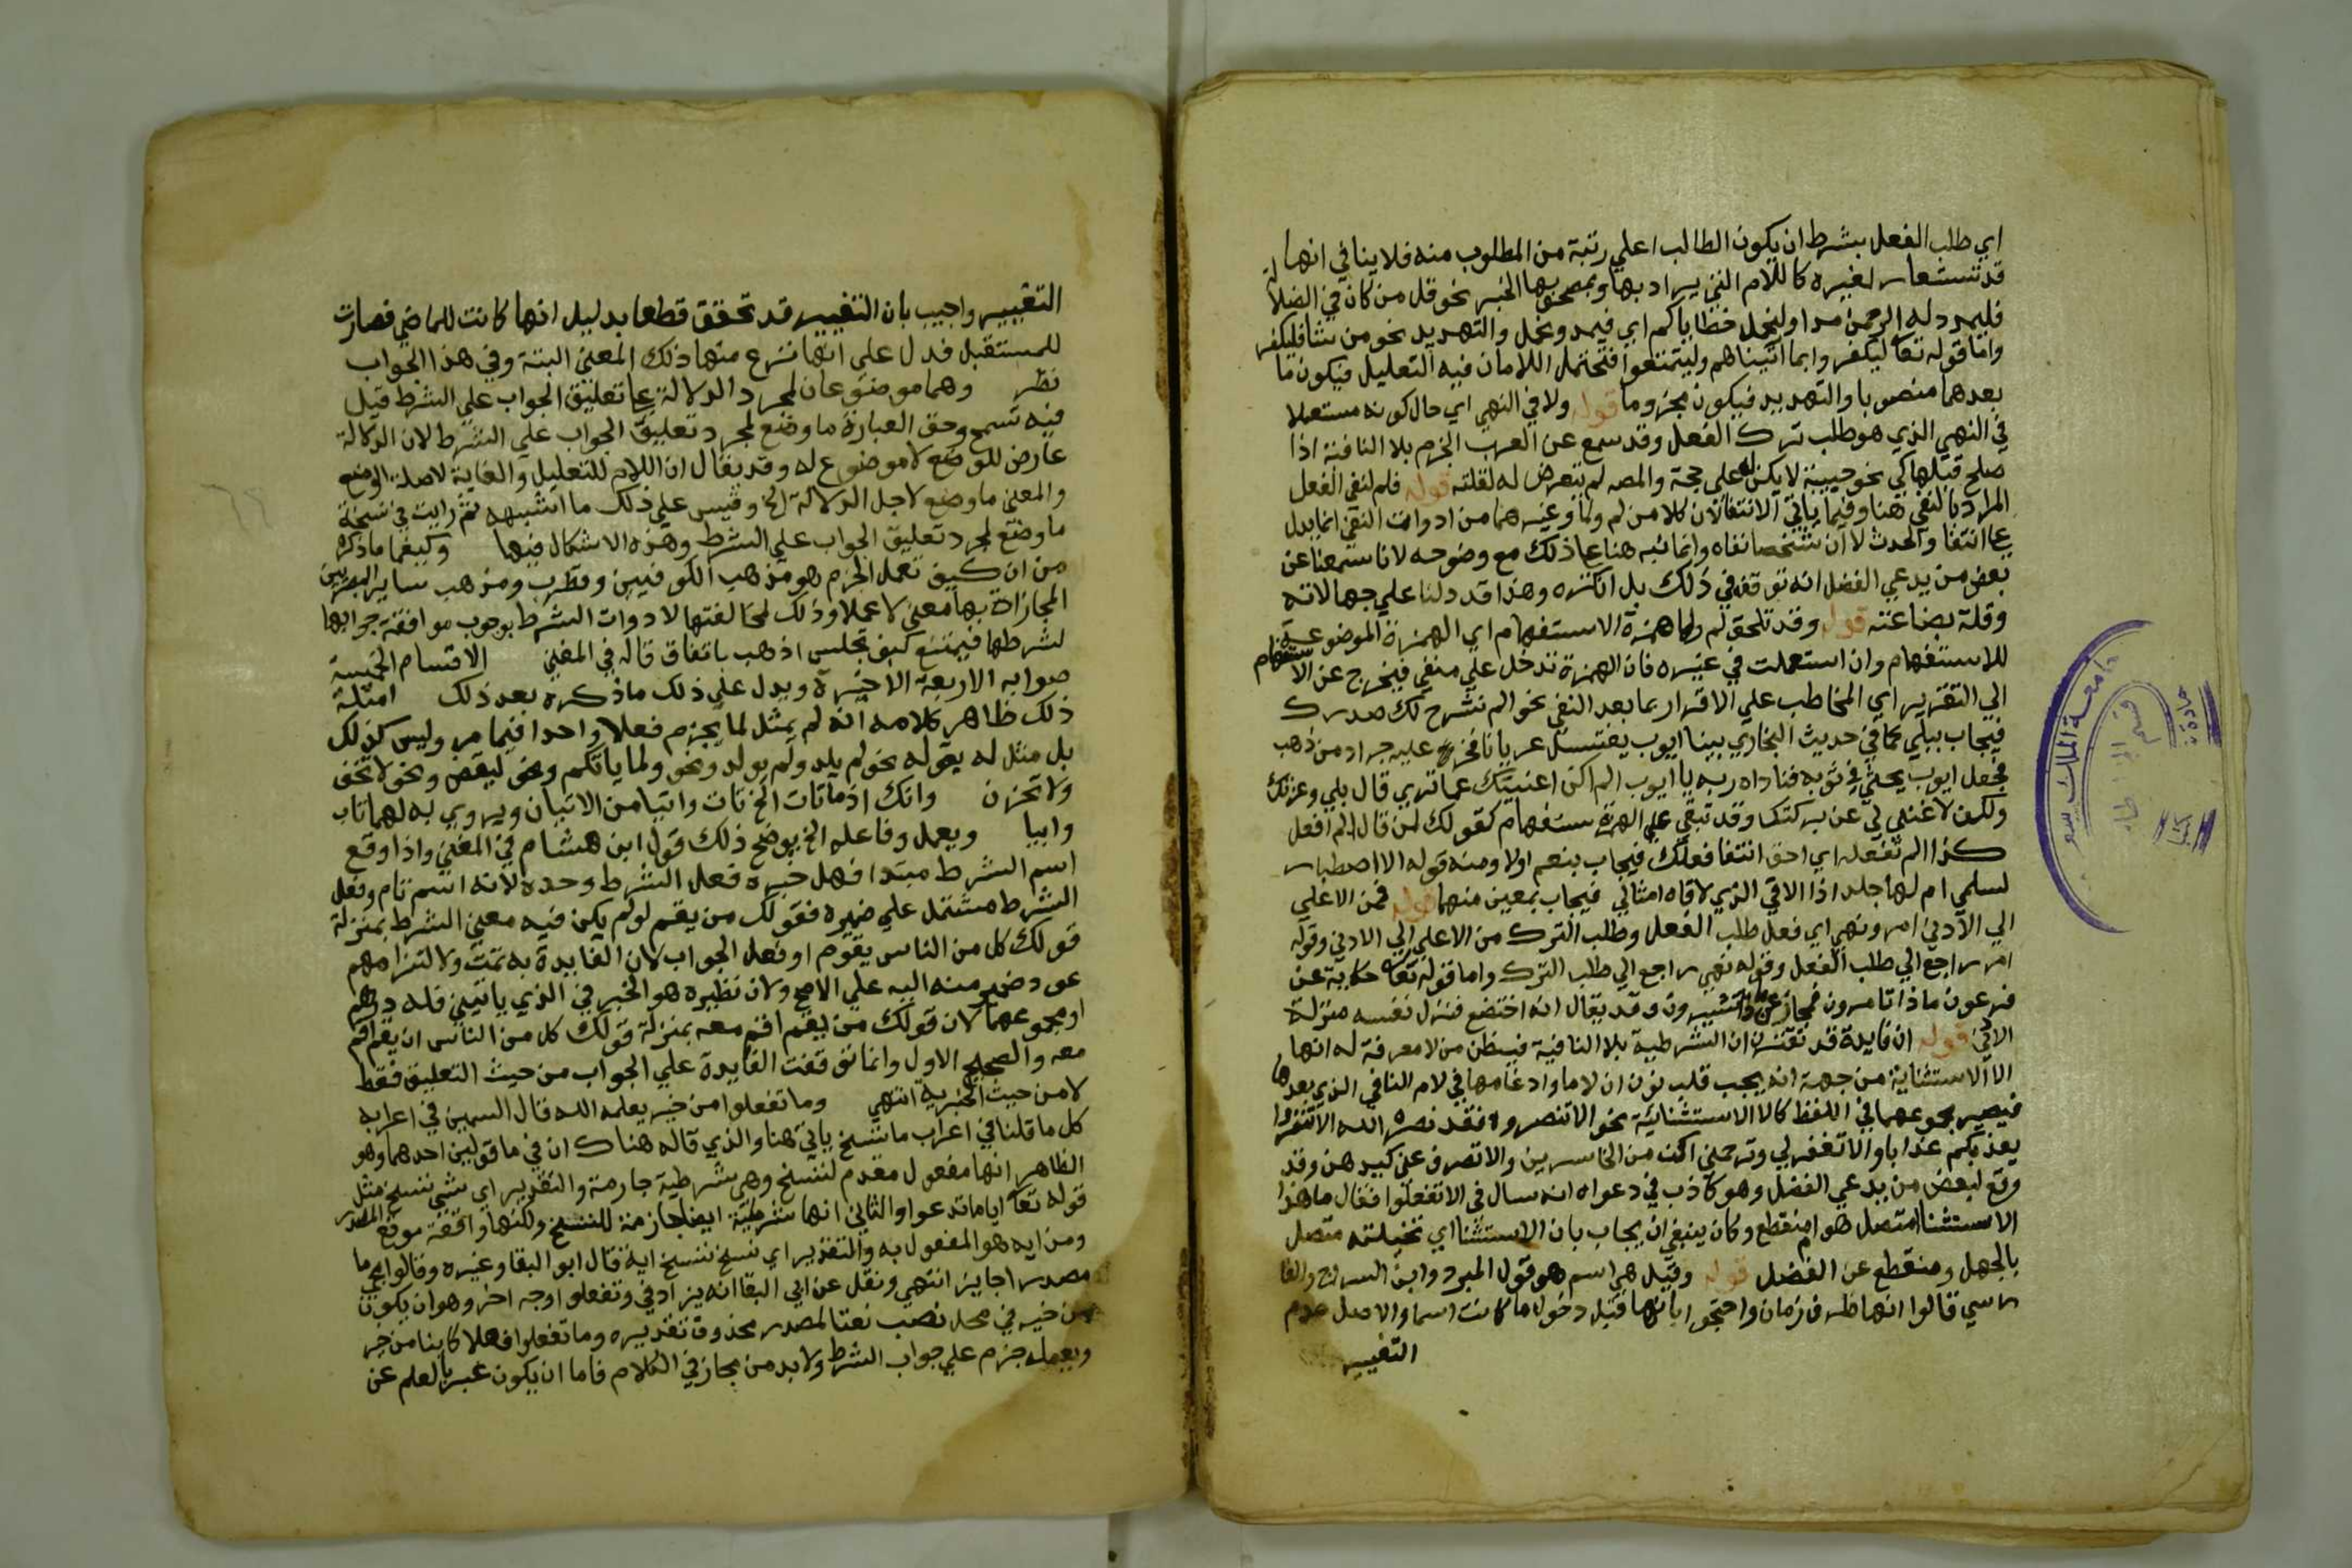 اي طلب الفعل بشرط ان يكون الطالب اعلي رتبة من المطلوب منه فلا ينافي انها
قد تستعار لغيره كاللام التي يراد بها وبمصحوبها الخبر نحو قل من كان في الضلالة
فليمدد له الرحمن مدا ولنحمل خطاياكم اي فيمد ونحمل والتهديد نحو من شا فليكفر
واما قوله تعا ليكفروا بما اتيناهم وليتمتعوا فتحتمل اللامان فيه التعليل فيكون ما
بعدهما منصوبا والتهديد فيكون مجزوما قوله ولا في النهي اي حال كونه مستعملا
في النهي الذي هو طلب ترك الفعل وقد سمع عن العرب الجزم بلا النافية اذا
صلح قبلها كي نحو جيته لا يكن له علي حجة والمصه لم يتعرض له لقلته قوله فلم لنفي الفعل
المراد بالنفي هنا وفيما ياتي الانتفا لان كلا من لم ولما وغيرهما من ادوات النفي انما يدل
علي انتفا الحدث لا ان شخصا نفاه وانما نبه هنا علي ذلك مع وضوحه لانا سمعنا عن
بعض من يدعي الفضل انه توقف في ذلك بل انكره وهذا قد دلنا علي جهالاته
وقلة بضاعته قوله وقد تلحق لم ولما همزة الاستفهام اي الهمزة الموضوعة
للاستفهام وان استعملت في غيره فان الهمزة تدخل علي منفي فيخرج عن الاستفهام
الي التقرير اي المخاطب علي الاقرار بما بعد النفي نحو الم نشرح لك صدرك
فيجاب ببلي كما في حديث البخاري بينا ايوب يغتسل عريانا فخر عليه جراد من ذهب
فجعل ايوب يحثي في ثوبه فناداه ربه يا ايوب الم اكن اغنيتك عما تري قال بلي وعزتك
ولكن لا غني لي عن بركتك وقد تبقي علي الاستفهام كقولك لمن قال لم افعل
كذا الم تفعله اي احق انتفا فعلك فيجاب بنعم او لا ومنه قوله الا اصطبار
لسلمي ام لها جلد اذا الاقي الذي لاقاه امثالي فيجاب بمعين منهما قوله فمن الاعلي
الي الادني امر ونهي اي فعل طلب الفعل وطلب الترك من الاعلي الي الادني وقوله
امر راجع الي طلب الفعل وقوله نهي راجع الي طلب الترك واما قوله تعا حكاية عن
فرعون ماذا تامرون فمجاز عن تشيرون وقد يقال انه اختضع فنزل نفسه منزلة
الادني قوله ان فايدة قد تقترن ان الشرطية بلا النافية فيظن من لا معرفة له انها
الا الاستثنائية من جهة انه يجب قلب نون ان لاما وادغامها في لام النافي الذي بعدها
فيصير مجموعهما في اللفظ كالا الاستثنائية نحو الا تنصروه فقد نصره الله الا تنفروا
يعذبكم عذابا والا تغفر لي وترحمني اكن من الخاسرين والا تصرف عني كيدهن وقد
وقع لبعض من يدعي الفضل وهو كاذب في دعواه انه سال في الا تفعلوا فقال ما هذا
الاستثنا امتصل هو ام منقطع وكان ينبغي ان يجاب بان الاستثنا اي تخيلته متصل
بالجهل ومنقطع عن الفضل قوله وقيل هي اسم هو قول المبرد وابن السراج والفا
رسي قالوا انها ظرف زمان واحتجوا بانها قبل دخول ما كانت اسما والاصل عدم
التغيير
التغيير واجيب بان التغيير قد تحقق قطعا بدليل انها كانت للماضي فصارت
للمستقبل فدل علي انها نزع منها ذلك المعني البتة وفي هذا الجواب
نظر وهما موضوعان لمجرد الدلالة علي تعليق الجواب علي الشرط قيل
فيه تسمح وحق العبارة ما وضع لمجرد تعليق الجواب علي الشرط لان الدلالة
عارض للوضع لا موضوع له وقد يقال ان اللام للتعليل والغاية لا صلة الوضع
والمعني ما وضع لاجل الدلالة الخ وقيس علي ذلك ما اشبهه ثم رايت في نسخة
ما وضع لمجرد تعليق الجواب علي الشرط وهذه لا اشكال فيها وكيفما ما ذكره
من ان كيف تعمل الجزم هو مذهب الكوفيين وقطرب ومذهب ساير البصريين
المجازاة بها معني لا عملا وذلك لمخالفتها لادوات الشرط بوجوب موافقة جوابها
لشرطها فيمتنع كيف تجلس اذهب باتفاق قاله في المغني الاقسام الخمسة
صوابه الاربعة الاخيرة ويدل علي ذلك ما ذكره بعد ذلك امثلة
ذلك ظاهر كلامه انه لم يمثل لما يجزم فعلا واحدا فيما مر وليس كذلك
بل مثل له بقوله نحو لم يلد ولم يولد ونحو ولما ياتكم ونحو ليقض ونحو لا تخف
ولا تحزن وانك اذما تات الخ تات واتيا من الاتيان ويروي به لهما تاب
وابيا ويعمل وفاعله الخ يوضح ذلك قول ابن هشام في المغني واذا وقع
اسم الشرط مبتدا فهل خبره فعل الشرط وحده لانه اسم تام وفعل
الشرط مشتمل علي ضميره فقولك من يقم لو لم يكن فيه معني الشرط بمنزلة
قولك كل من الناس يقوم او فعل الجواب لان الفايدة به تمت ولالتزامهم
عود ضمير منه اليه علي الاصح ولان نظيره هو الخبر في الذي ياتيني فله درهم
او مجموعهما لان قولك من يقم اقم معه بمنزلة قولك كل من الناس ان يقم اقم
معه والصحيح الاول وانما توقفت الفايدة علي الجواب من حيث التعليق فقط
لا من حيث الخبرية انتهي وما تفعلوا من خير يعلمه الله قال السمين في اعرابه
كل ما قلنا في اعراب ما ننسخ ياتي هنا والذي قاله هناك ان في ما قولين احدهما وهو
الظاهر انها مفعول مقدم لننسخ وهي شرطية جازمة والتقدير اي شي ننسخ مثل
قوله تعا اياما تدعوا والثاني انها شرطية ايضا جازمة لننسخ ولكنها واقعة موقع المصدر
ومن ايه هو المفعول به والتقدير اي نسخ ننسخ اية قال ابو البقا وغيره وقالوا مجي ما
مصدرا جايز انتهي ونقل عن ابي البقا انه يزاد في وتفعلوا وجه اخر وهو ان يكون
من خير في محل نصب نعتا لمصدر محذوف تقديره وما تفعلوا فعلا كاينا من خير
ويعمله جزم علي جواب الشرط ولا بد من مجاز في الكلام فاما ان يكون عبر بالعلم عن